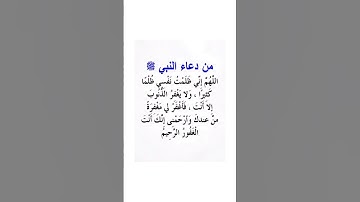 من دعاء النبي ﷺ
اللَّهُمَّ إِنِّي ظَلَمْتُ نَفْسِي ظُلْمًا
كَثِيرًا ، وَلَا يَغْفِرُ الذُّنُوبَ
إِلاَّ أَنْتَ ، فَاغْفِرْ لِي مَغْفِرَةً
مِنْ عِنْدِكَ وَارْحَمْنِي إِنَّكَ أَنْتَ
الْغَفُورُ الرَّحِيمُ